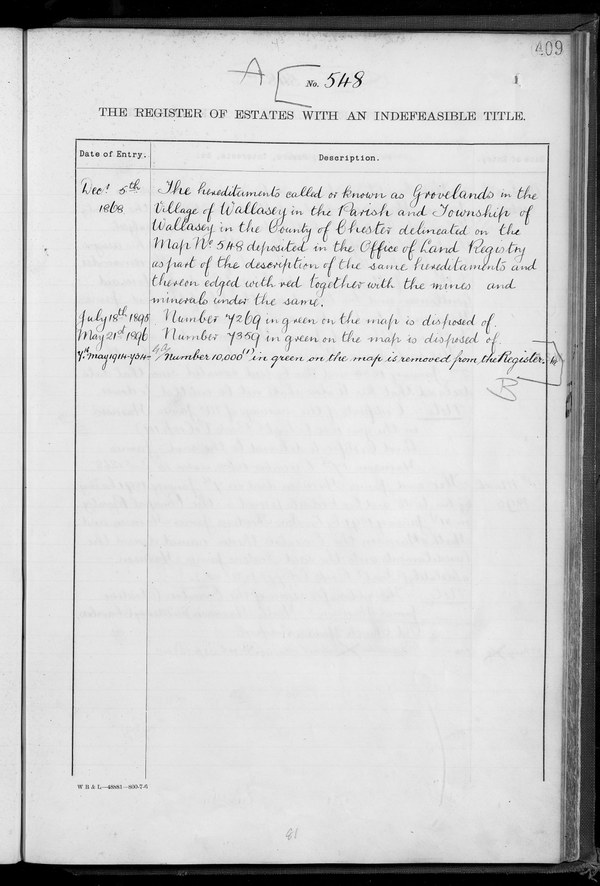 409
A
No. 548
1
THE REGISTER OF ESTATES WITH AN INDEFEASIBLE TITLE.
Date of Entry.
Description.
Decr 5th
1868
The hereditaments called or known as Grovelands in the
Village of Wallasey in the Parish and Township of
Wallasey in the County of Chester delineated on the
Map No 548 deposited in the Office of Land Registry
as part of the description of the same hereditaments and
thereon edged with red together with the mines and
minerals under the same.
July 18th 1895 Number 7269 in green on the map is disposed of.
May 21st 1896 Number 7359 in green on the map is disposed of.
7th May 1914 Number 10,000(1) in green on the map is removed from the Register.
B
W B & L—48881—800-7-6
81